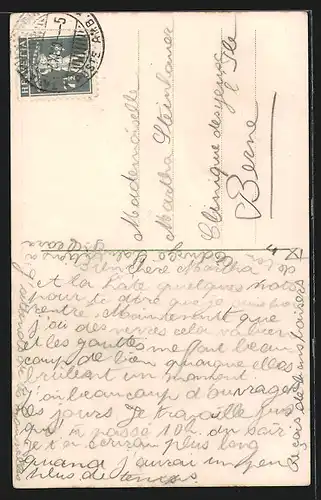 HELVETIA
AMB.
Mademoiselle
Martha Steinhauer
Clinique des yeux
Ile
Berne
Bien chère Martha
Et la hâte quelques mots
pour te dire que je suis bien
rentrée. Maintenant que
j'ai des verres cela va bien
et les gouttes me font beau-
coup de bien quoique elles
brûlent un moment.
J'ai beaucoup d'ouvrage
ces jours. Je travaille jus
qu'à passé 10h. du soir.
Je t'écrirai plus long
quand j'aurai un peu
plus de temps
Reçois de bons baisers